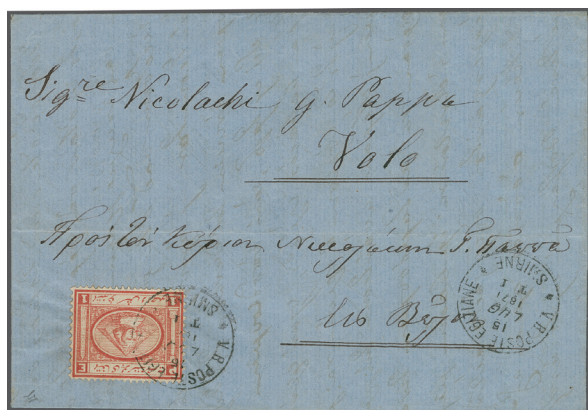 Sig.re Nicolachi g. Pappa
Volo
Πρός τόν Κύριον Νικολάκην Γ. Παππᾶ
εἰς Βόλον
V.R. POSTE EGIZIANE
SMIRNE
15
LUG
1871
T 1
1
3
V.R. POSTE
SMIRNE